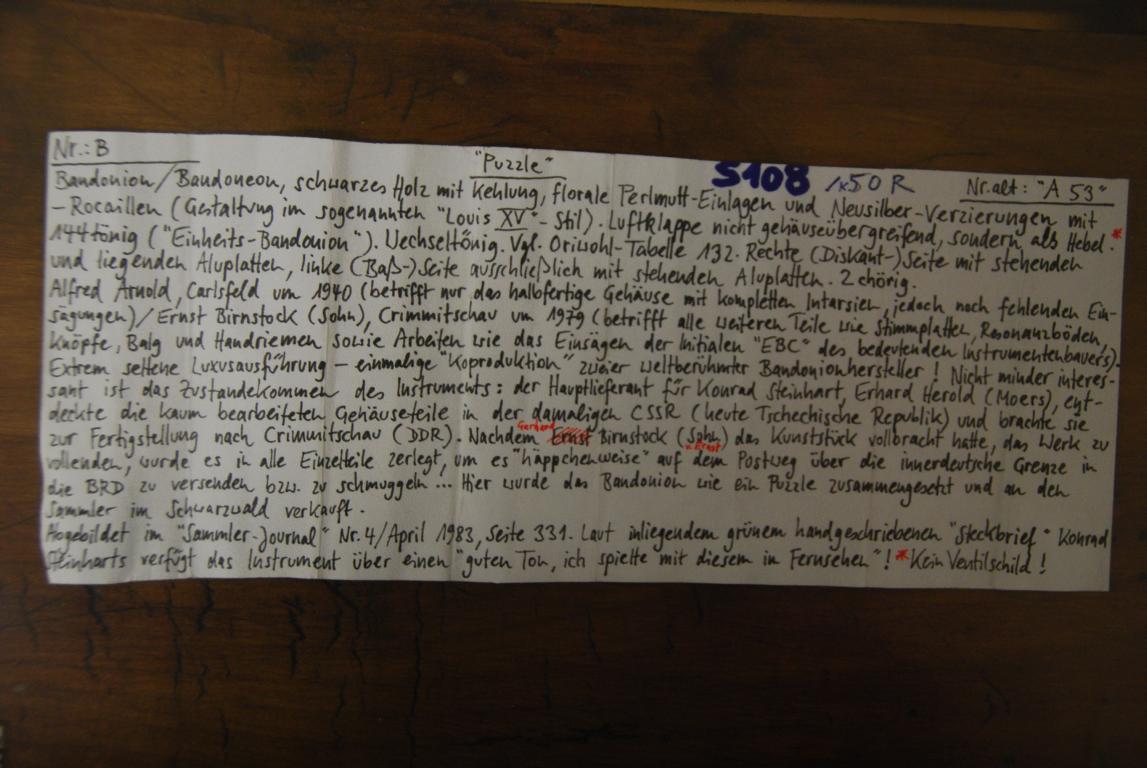 Nr.: B
"Puzzle"
S108 1x50 R
Nr. alt: "A 53"
Bandonion/Bandoneon, schwarzes Holz mit Kehlung, florale Perlmutt-Einlagen und Neusilber-Verzierungen mit
– Rocaillen (Gestaltung im sogenannten "Louis XV"-Stil). Luftklappe nicht gehäuseübergreifend, sondern als Hebel.*
144tönig ("Einheits-Bandonion"). Wechseltönig. Vgl. Oriwohl-Tabelle 132. Rechte (Diskant-)Seite mit stehenden
und liegenden Aluplatten, linke (Baß-)Seite ausschließlich mit stehenden Aluplatten. 2 chörig.
Alfred Arnold, Carlsfeld um 1940 (betrifft nur das halbfertige Gehäuse mit kompletten Intarsien, jedoch noch fehlenden Ein-
sägungen)/Ernst Birnstock (Sohn), Crimmitschau um 1979 (betrifft alle weiteren Teile wie Stimmplatten, Resonanzböden,
Knöpfe, Balg und Handriemen sowie Arbeiten wie das Einsägen der Initialen "EBC" des bedeutenden Instrumentenbauers).
Extrem seltene Luxusausführung – einmalige "Koproduktion" zweier weltberühmter Bandonionhersteller! Nicht minder interes-
sant ist das Zustandekommen des Instruments: der Hauptlieferant für Konrad Steinhart, Erhard Herold (Moers), ent-
deckte die kaum bearbeiteten Gehäuseteile in der damaligen CSSR (heute Tschechische Republik) und brachte sie
zur Fertigstellung nach Crimmitschau (DDR). Nachdem Gerhard Ernst Birnstock (Sohn v. Ernst) das Kunststück vollbracht hatte, das Werk zu
vollenden, wurde es in alle Einzelteile zerlegt, um es "häppchenweise" auf dem Postweg über die innerdeutsche Grenze in
die BRD zu versenden bzw. zu schmuggeln... Hier wurde das Bandonion wie ein Puzzle zusammengesetzt und an den
Sammler im Schwarzwald verkauft.
Abgebildet im "Sammler-Journal" Nr. 4/April 1983, Seite 331. Laut inliegendem grünem handgeschriebenen "Steckbrief" Konrad
Steinharts verfügt das Instrument über einen "guten Ton, ich spielte mit diesem in Fernsehen"! *Kein Ventilschild!